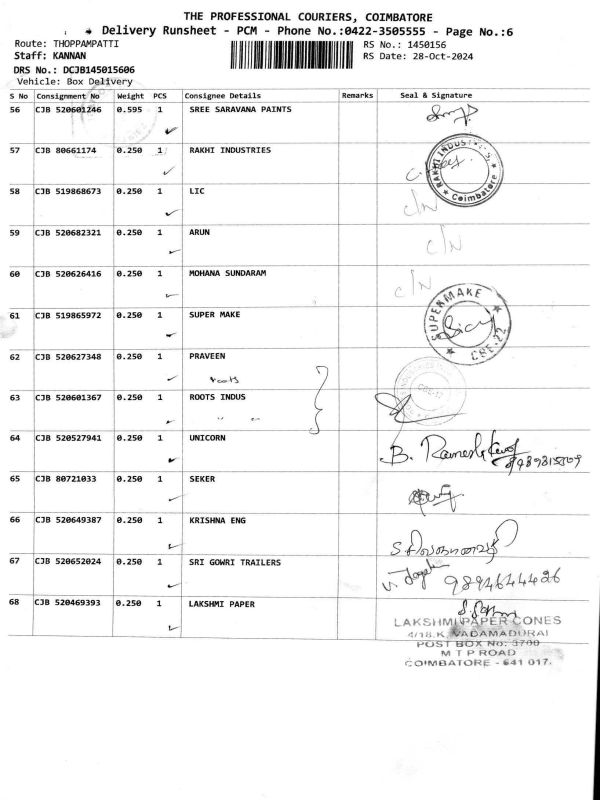 THE PROFESSIONAL COURIERS, COIMBATORE
Delivery Runsheet - PCM - Phone No.:0422-3505555 - Page No.:6
Route: THOPPAMPATTI RS No.: 1450156
Staff: KANNAN RS Date: 28-Oct-2024
DRS No.: DCJB145015606
Vehicle: Box Delivery
S No Consignment No Weight PCS Consignee Details Remarks Seal & Signature
56 CJB 520601246 0.595 1 SREE SARAVANA PAINTS
57 CJB 80661174 0.250 1 RAKHI INDUSTRIES
RAKHI INDUSTRIES
Coimbatore
58 CJB 519868673 0.250 1 LIC
C/N
59 CJB 520682321 0.250 1 ARUN
C/N
60 CJB 520626416 0.250 1 MOHANA SUNDARAM
C/N
61 CJB 519865972 0.250 1 SUPER MAKE
SUPERMAKE
CBE-22
62 CJB 520627348 0.250 1 PRAVEEN
roots
63 CJB 520601367 0.250 1 ROOTS INDUS
" "
64 CJB 520527941 0.250 1 UNICORN
B.
65 CJB 80721033 0.250 1 SEKER
66 CJB 520649387 0.250 1 KRISHNA ENG
67 CJB 520652024 0.250 1 SRI GOWRI TRAILERS
9894644426
68 CJB 520469393 0.250 1 LAKSHMI PAPER
LAKSHMI PAPER CONES
4/18.K, VADAMADURAI
POST BOX No: 3700
M T P ROAD
COIMBATORE - 641 017.